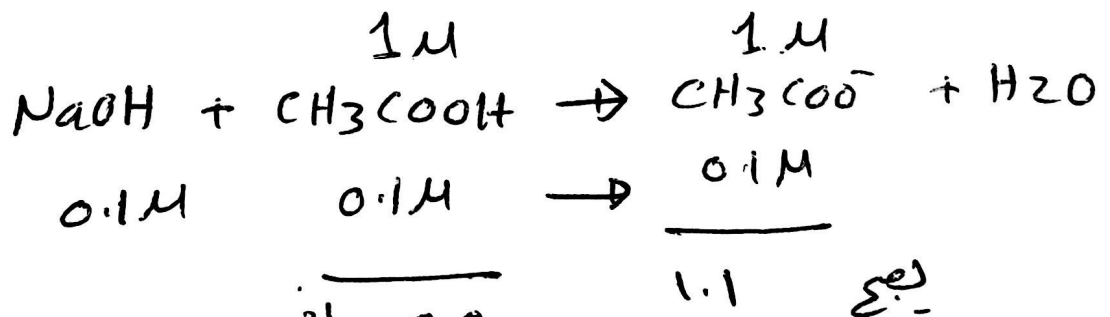 1M 1.M
NaOH + CH3COOH → CH3COO⁻ + H2O
0.1M 0.1M → 0.1M
1.1